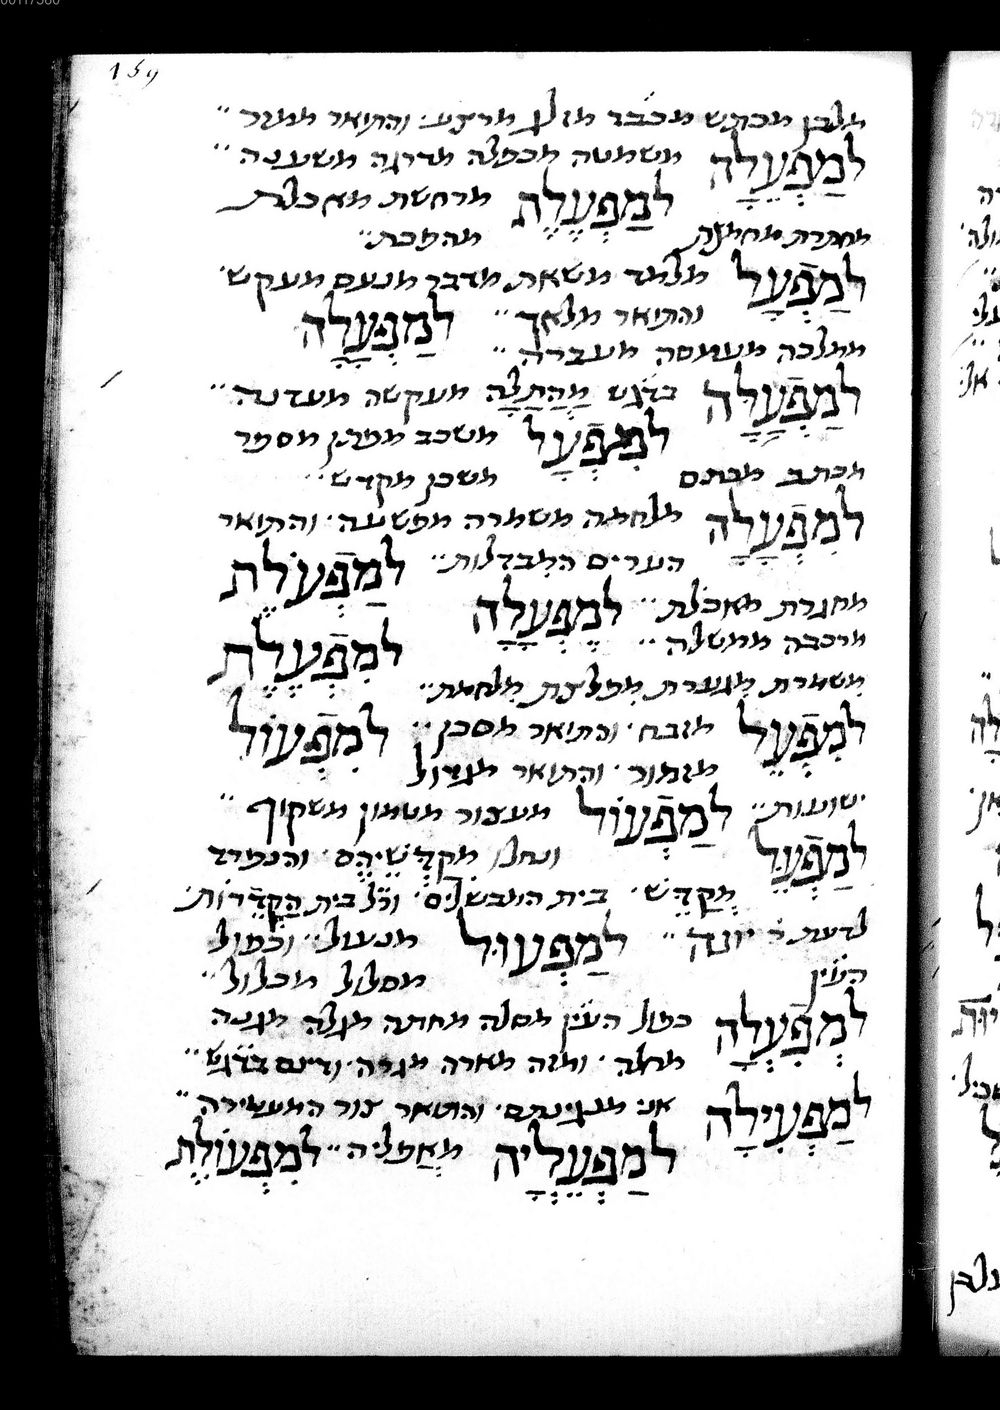 159
מלבן מכתש מכבר מזלג מרצע׳ והתואר ממזר ״
לְמַפְעֵלָה משמטה מכפלה מדרגה משענה ״
לְמַפְעֶלֶת מרחשת מאכלת
מחברת מחמצת מהפכת ״
לְמַפְעָל מלמד משאת מדבר מנעם מעקש׳
והתואר מלאך ״ לְמַפְעָלָה
ממלכה מעמסה מעברה ״
לְמַפְעָלָה בדגש מַהֲתַלָּה מעקשה מעדנה ״
לְמִפְעָל משכב מפתן מספר
מכתב מכתם משכן מקדש ״
לְמִפְעָלָה מלחמה משמרה מפשעה׳ והתואר
הערים המבדלות ״ לְמַפְעֹלֶת
מחגרת מאכלת ״ לְמֶפְעָלָה
מרכבה ממשלה ״ לְמִפְעֶלֶת
משמרת מגערת מפלצת מלחמת ״
לְמִפְעֵל מזבח׳ והתואר מסכן ״ לְמִפְעוֹל
מזמור׳ והתואר מגדול
ישועות ״ לְמַפְעוֹל מעצור מטמון משקוף ״
לְמַפְעֵל ונחלו מִקְדְשֵׁיהֶם׳ והנפרד
מְקַדֵשׁ׳ בית המבשלים׳ וכל בית הַקְדֵרוֹת׳
לדעת ר׳ יונה ״ לְמַפְעוּל מנעול ״ וכפול
העין מסלול מכלול ״
לְמְפִעְלָה כפול העין מסלה מחתה מגלה מגנה
מחלה׳ ומזה מארה מגרה׳ ודינם בדגש ״
לְמַפְעִילָה אני מנגינתם׳ והתואר צור המעטירה ״
לְמַפְעֵלְיָה מַאפליה ״ לְמִפְעוֹלֶת